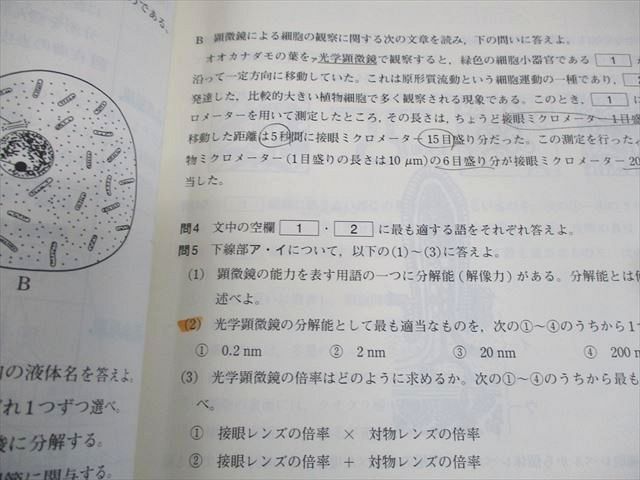 である、
B
の液体名を答えよ。
れ1つずつ選べ。
に分解する。
に関与する。
B 顕微鏡による細胞の観察に関する次の文章を読み、下の問いに答えよ。
オオカナダモの葉をア光学顕微鏡で観察すると、緑色の細胞小器官である 1
沿って一定方向に移動していた。これは原形質流動という細胞運動の一種であり、
発達した、比較的大きい植物細胞で多く観察される現象である。このとき、 1
ロメーターを用いて測定したところ、その長さは、ちょうど接眼ミクロメーター1目
移動した距離は5秒間に接眼ミクロメーター15目盛り分だった。この測定を行った
物ミクロメーター(1目盛りの長さは10μm)の6目盛り分が接眼ミクロメーター20
当した。
問4 文中の空欄 1 ・ 2 に最も適する語をそれぞれ答えよ。
問5 下線部ア・イについて、以下の(1)~(3)に答えよ。
(1) 顕微鏡の能力を表す用語の一つに分解能(解像力)がある。分解能とは
述べよ。
(2) 光学顕微鏡の分解能として最も適当なものを、次の①~④のうちから1
① 0.2nm ② 2nm ③ 20nm ④ 200
(3) 光学顕微鏡の倍率はどのように求めるか。次の①~④のうちから最も
べ。
① 接眼レンズの倍率 × 対物レンズの倍率
② 接眼レンズの倍率 + 対物レンズの倍率